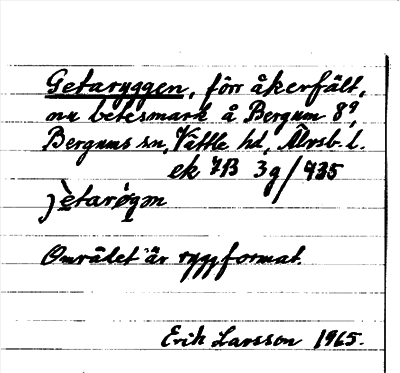 Getaryggen, förr åkerfält,
nu betesmark å Bergum 8⁹,
Bergums sn, Vättle hd, Älvsb. l.
ek 7B 3g/435
Området är ryggformat.
Erik Larsson 1965.